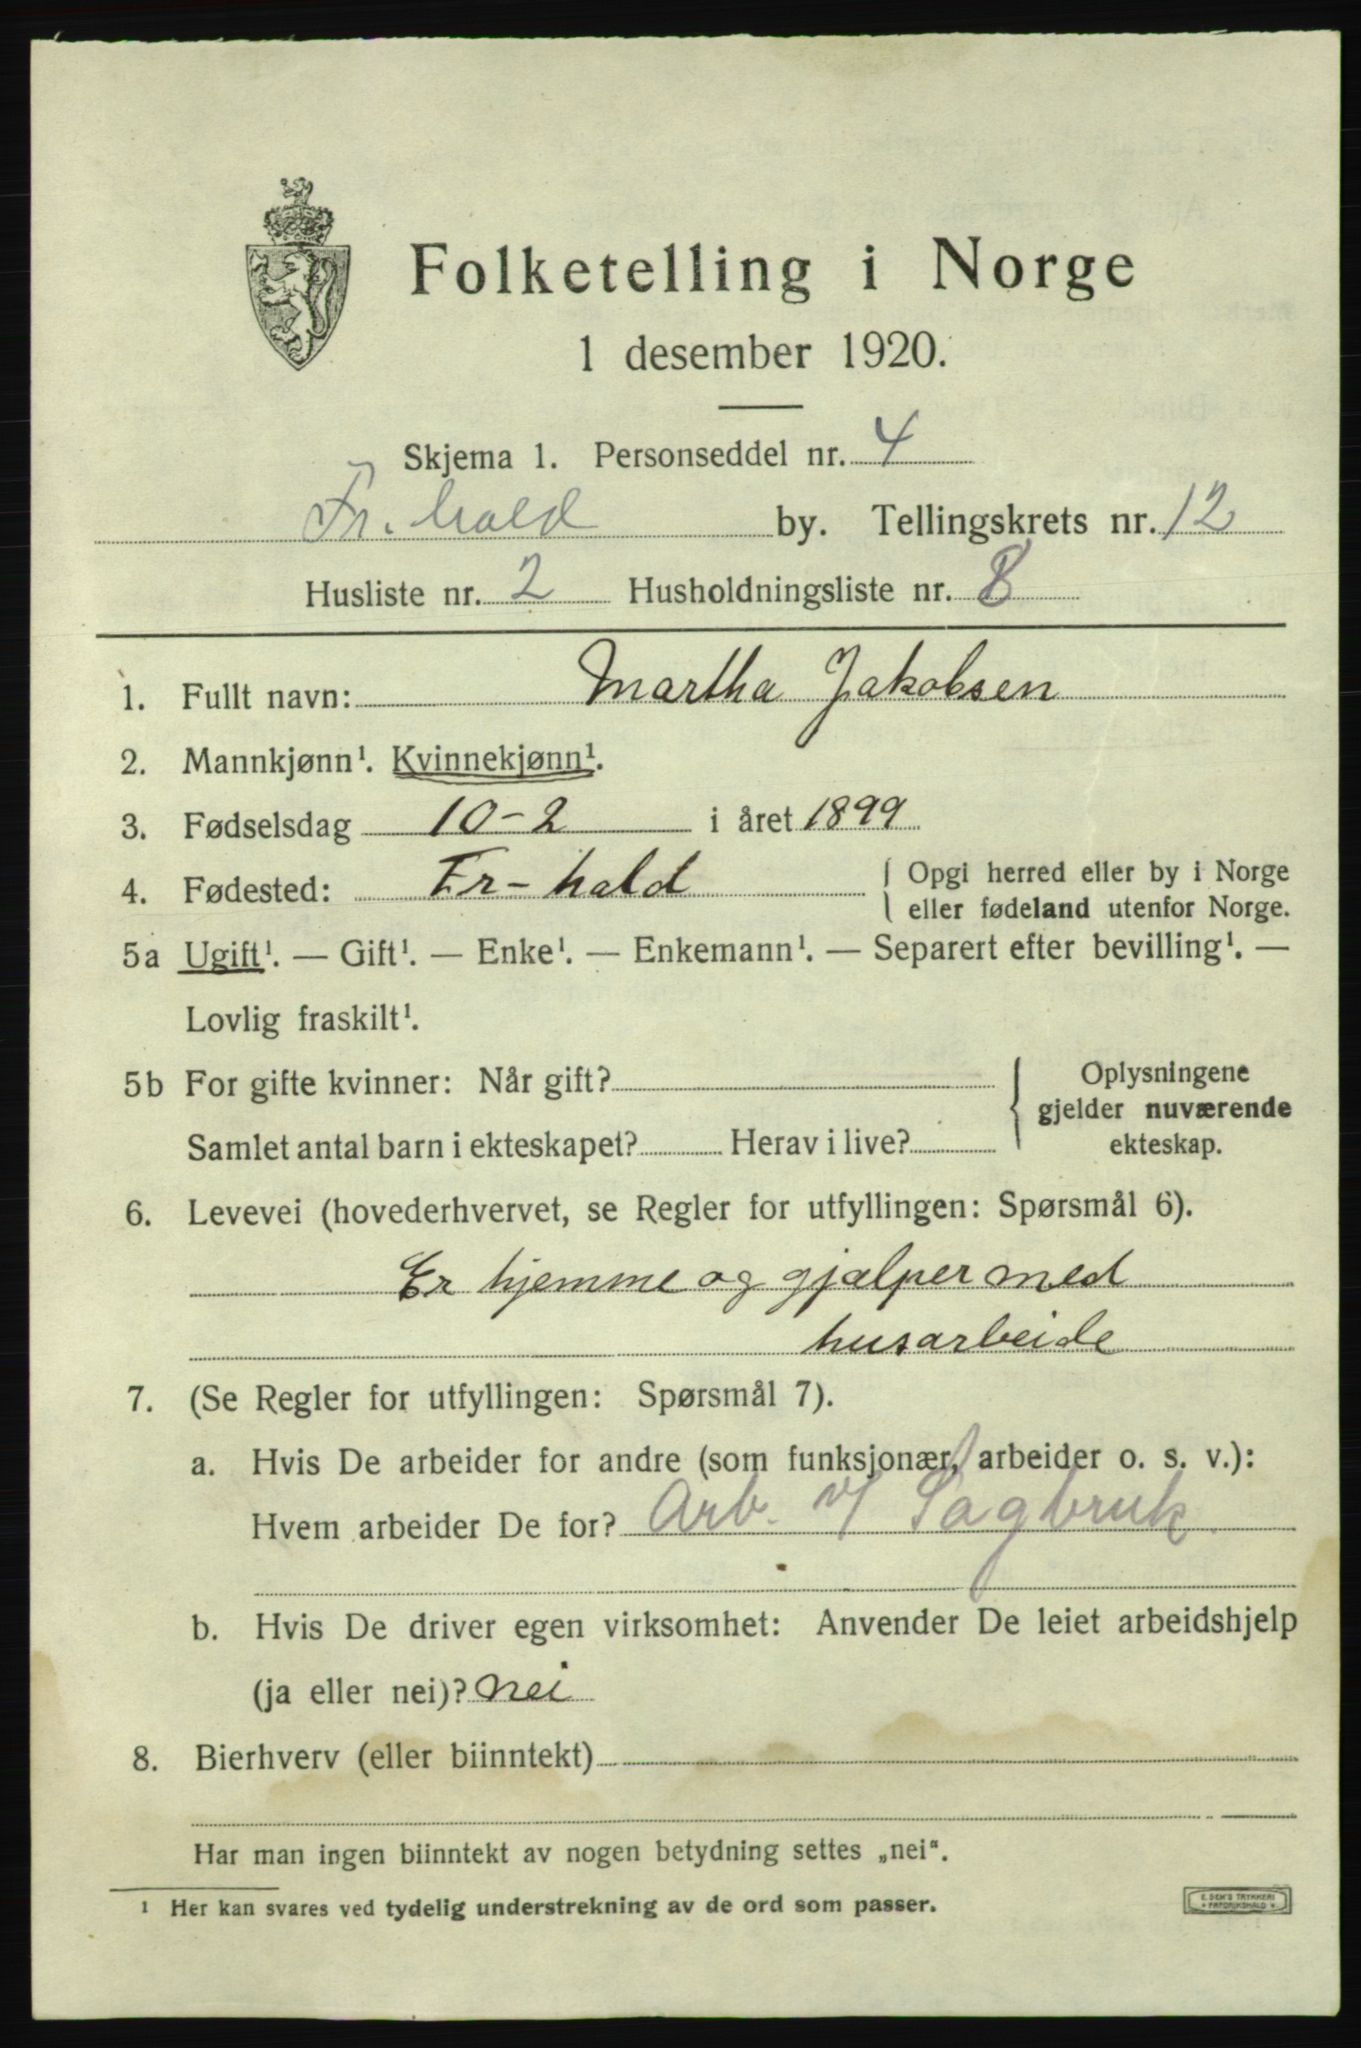 Folketelling i Norge
1 desember 1920.
Skjema 1. Personseddel nr. 4
Fr.hald by. Tellingskrets nr. 12
Husliste nr. 2 Husholdningsliste nr. 8
1. Fullt navn: Martha Jakobsen
2. Mannkjønn¹. Kvinnekjønn¹.
3. Fødselsdag 10-2 i året 1899
4. Fødested: Fr-hald { Opgi herred eller by i Norge
eller fødeland utenfor Norge.
5a Ugift¹. — Gift¹. — Enke¹. — Enkemann¹. — Separert efter bevilling¹. —
Lovlig fraskilt¹.
5b For gifte kvinner: Når gift? { Oplysningene
gjelder nuværende
Samlet antal barn i ekteskapet? Herav i live? ekteskap.
6. Levevei (hovederhvervet, se Regler for utfyllingen: Spørsmål 6).
Er hjemme og gjælper med
husarbeide
7. (Se Regler for utfyllingen: Spørsmål 7).
a. Hvis De arbeider for andre (som funksjonær, arbeider o. s. v.):
Hvem arbeider De for? Arb. v/ Sagbruk
b. Hvis De driver egen virksomhet: Anvender De leiet arbeidshjelp
(ja eller nei)? nei
8. Bierhverv (eller biinntekt)
Har man ingen biinntekt av nogen betydning settes „nei“.
¹ Her kan svares ved tydelig understrekning av de ord som passer.
E. SEM'S TRYKKERI
* FREDRIKSHALD *